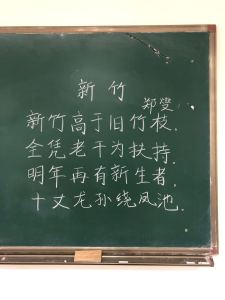 新竹
郑燮
新竹高于旧竹枝.
全凭老干为扶持.
明年再有新生者,
十丈龙孙绕凤池.